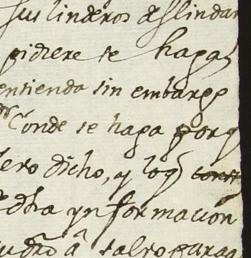 sus linderos deslindan
pidiere se haga
entienda sin embargo
Conde se haga por
dicho, y
dha ynformacion
salvo para